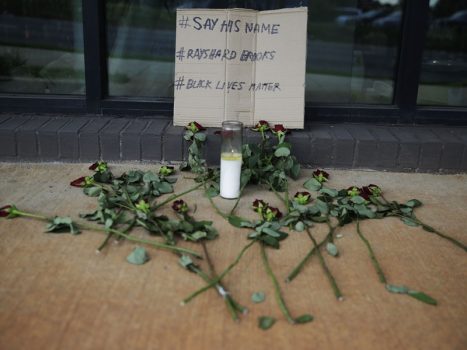 # SAY HIS NAME
# RAYSHARD BROOKS
# BLACK LIVES MATTER